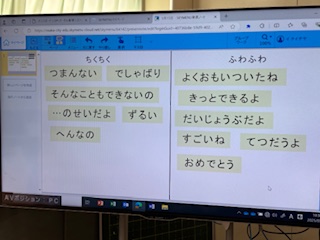 ちくちく
つまんない でしゃばり
そんなこともできないの
…のせいだよ ずるい
へんなの
ふわふわ
よくおもいついたね
きっとできるよ
だいじょうぶだよ
すごいね てつだうよ
おめでとう
AVポジション : PC